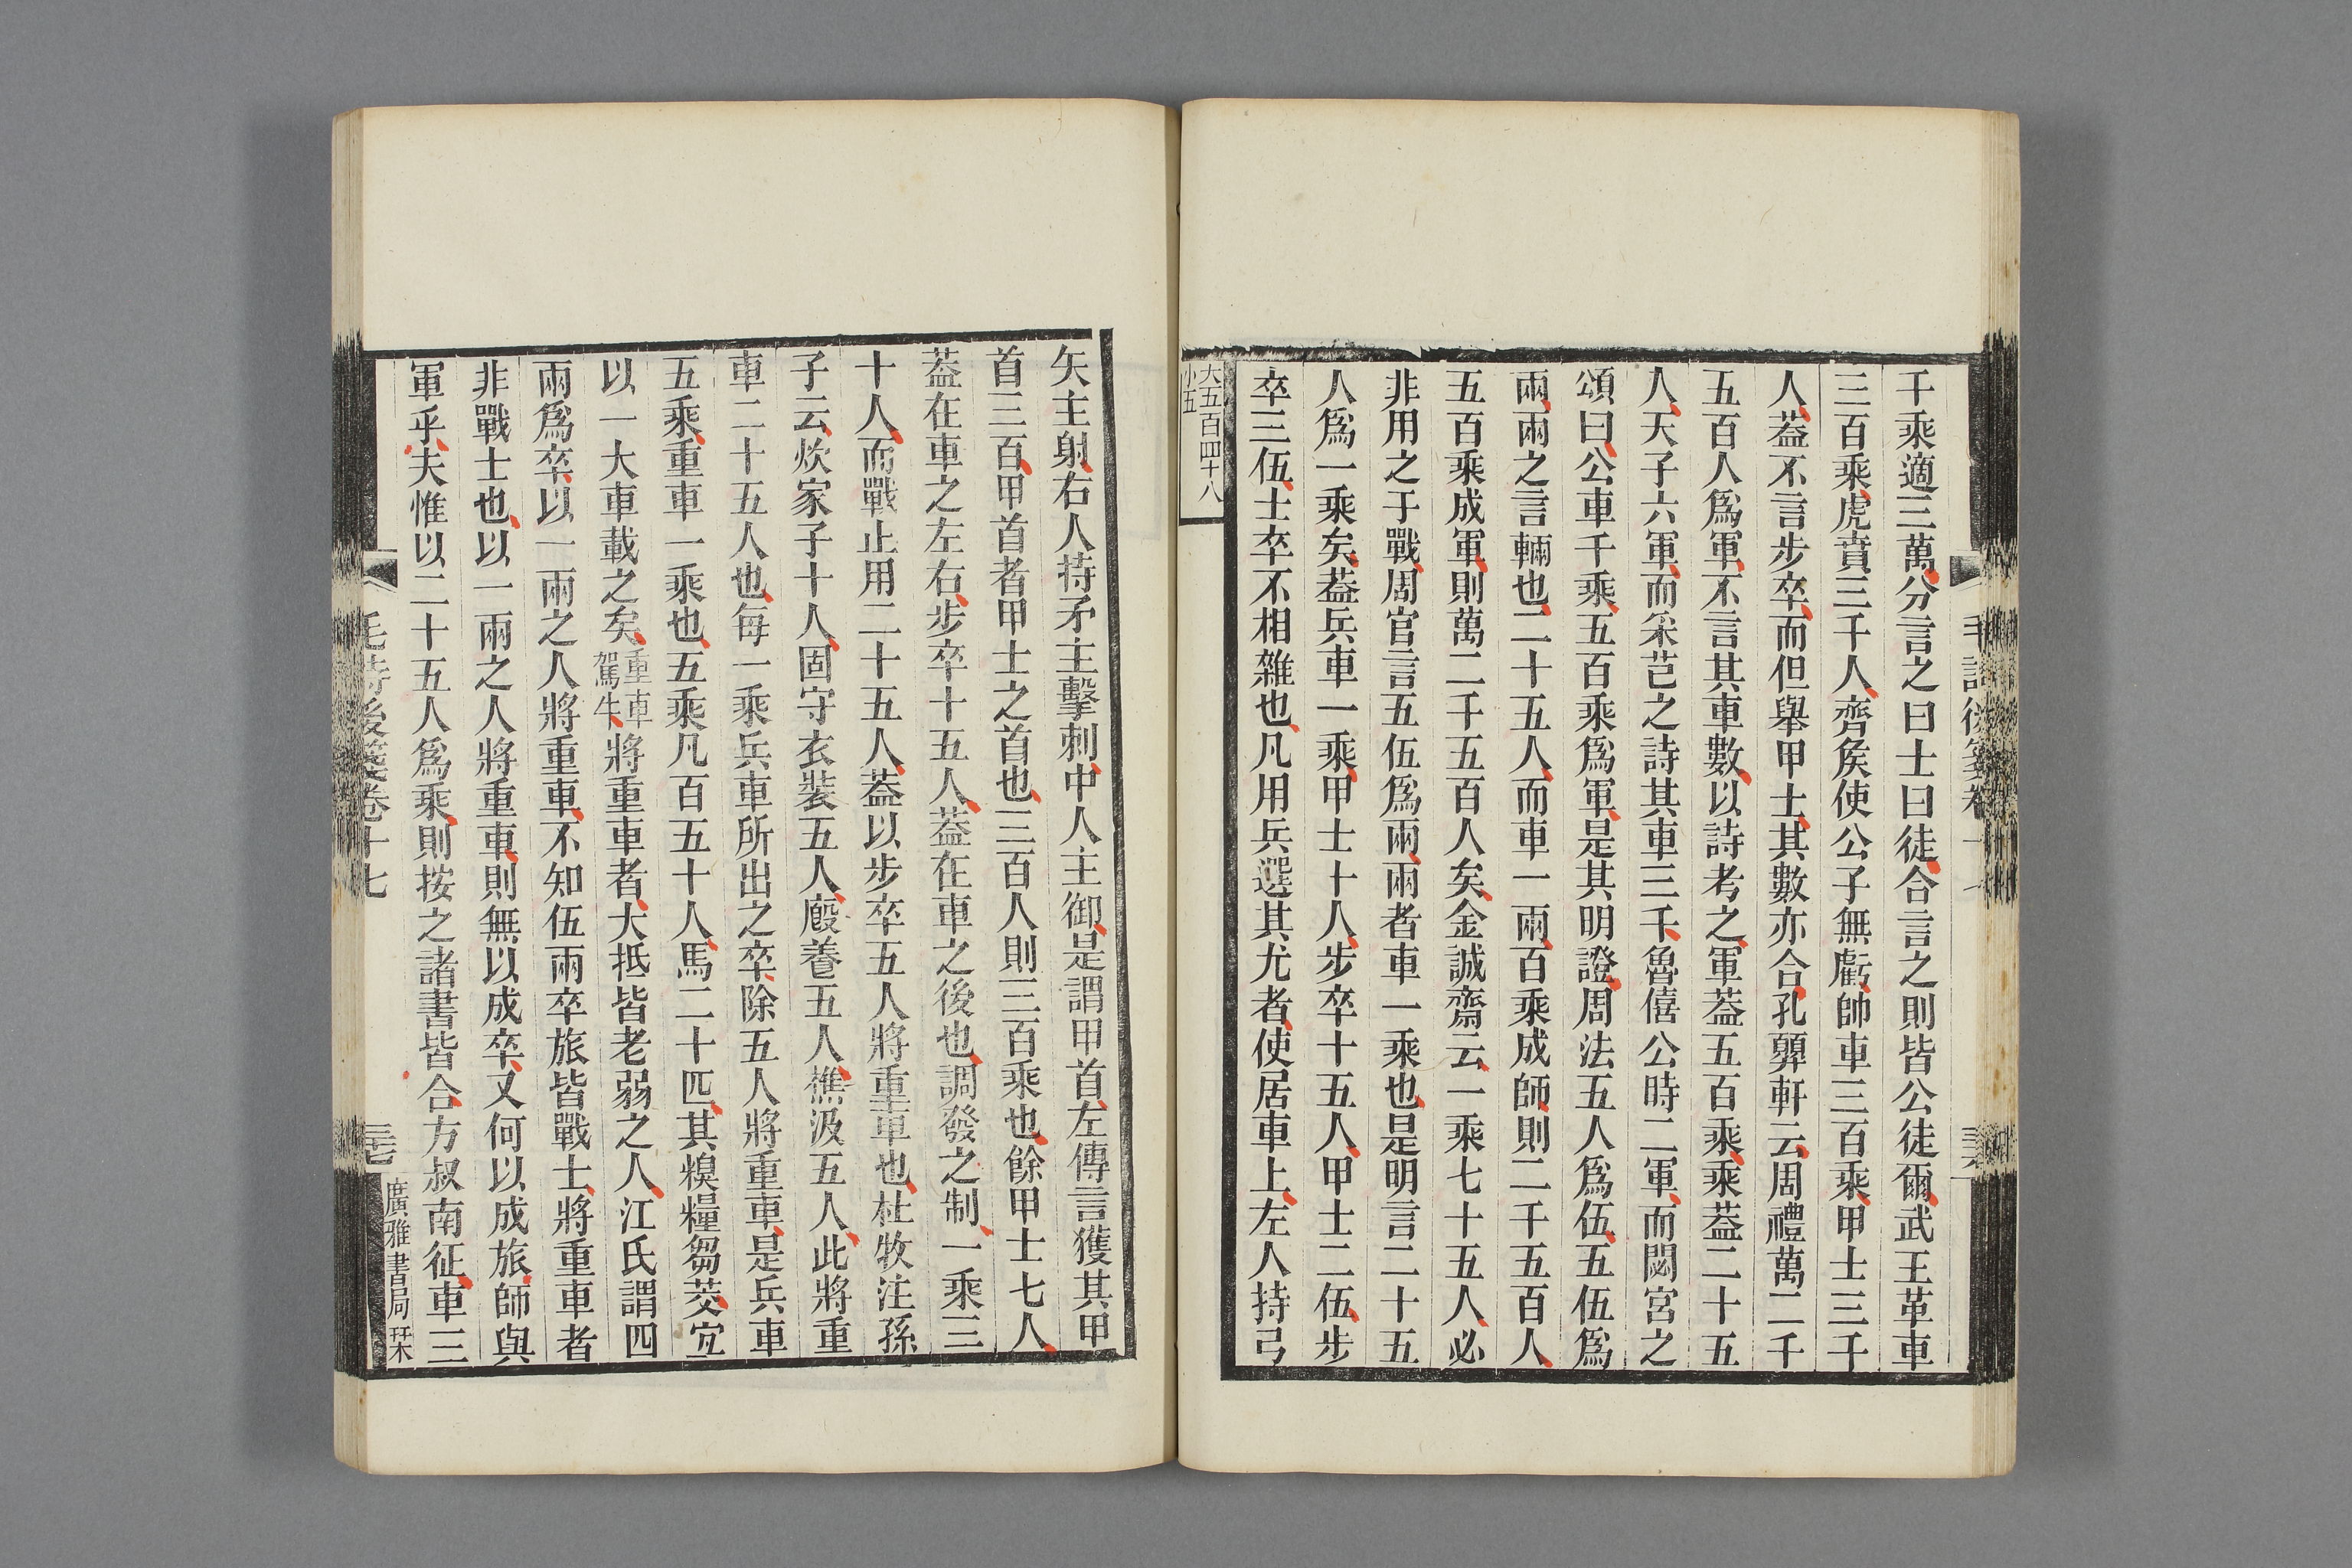 千乘適三萬分言之曰士曰徒合言之則皆公徒爾武王革車
三百乘虎賁三千人齊矦使公子無虧帥車三百乘甲士三千
人葢不言步卒而但舉甲士其數亦合孔顨軒云周禮萬二千
五百人爲軍不言其車數以詩考之軍葢五百乘乘葢二十五
人天子六軍而采芑之詩其車三千魯僖公時二軍而閟宮之
頌曰公車千乘五百乘爲軍是其明證周法五人爲伍五伍爲
兩兩之言輛也二十五人而車一兩百乘成師則二千五百人
五百乘成軍則萬二千五百人矣金誠齋云一乘七十五人必
非用之于戰周官言五伍爲兩兩者車一乘也是明言二十五
人爲一乘矣葢兵車一乘甲士十人步卒十五人甲士二伍步
卒三伍士卒不相雜也凡用兵選其尤者使居車上左人持弓
大五百四十八
小五
矢主射右人持矛主擊刺中人主御是謂甲首左傳言獲其甲
首三百甲首者甲士之首也三百人則三百乘也餘甲士七人
葢在車之左右步卒十五人葢在車之後也調發之制一乘三
十人而戰止用二十五人葢以步卒五人將重車也杜牧注孫
子云炊家子十人固守衣裝五人廏養五人樵汲五人此將重
車二十五人也每一乘兵車所出之卒除五人將重車是兵車
五乘重車一乘也五乘凡百五十人馬二十匹其糗糧芻茭宐
以一大車載之矣重車駕牛將重車者大抵皆老弱之人江氏謂四
兩爲卒以一兩之人將重車不知伍兩卒旅皆戰士將重車者
非戰士也以一兩之人將重車則無以成卒又何以成旅師與
軍乎夫惟以二十五人爲乘則按之諸書皆合方叔南征車三
毛詩後箋卷十七
廣雅書局栞